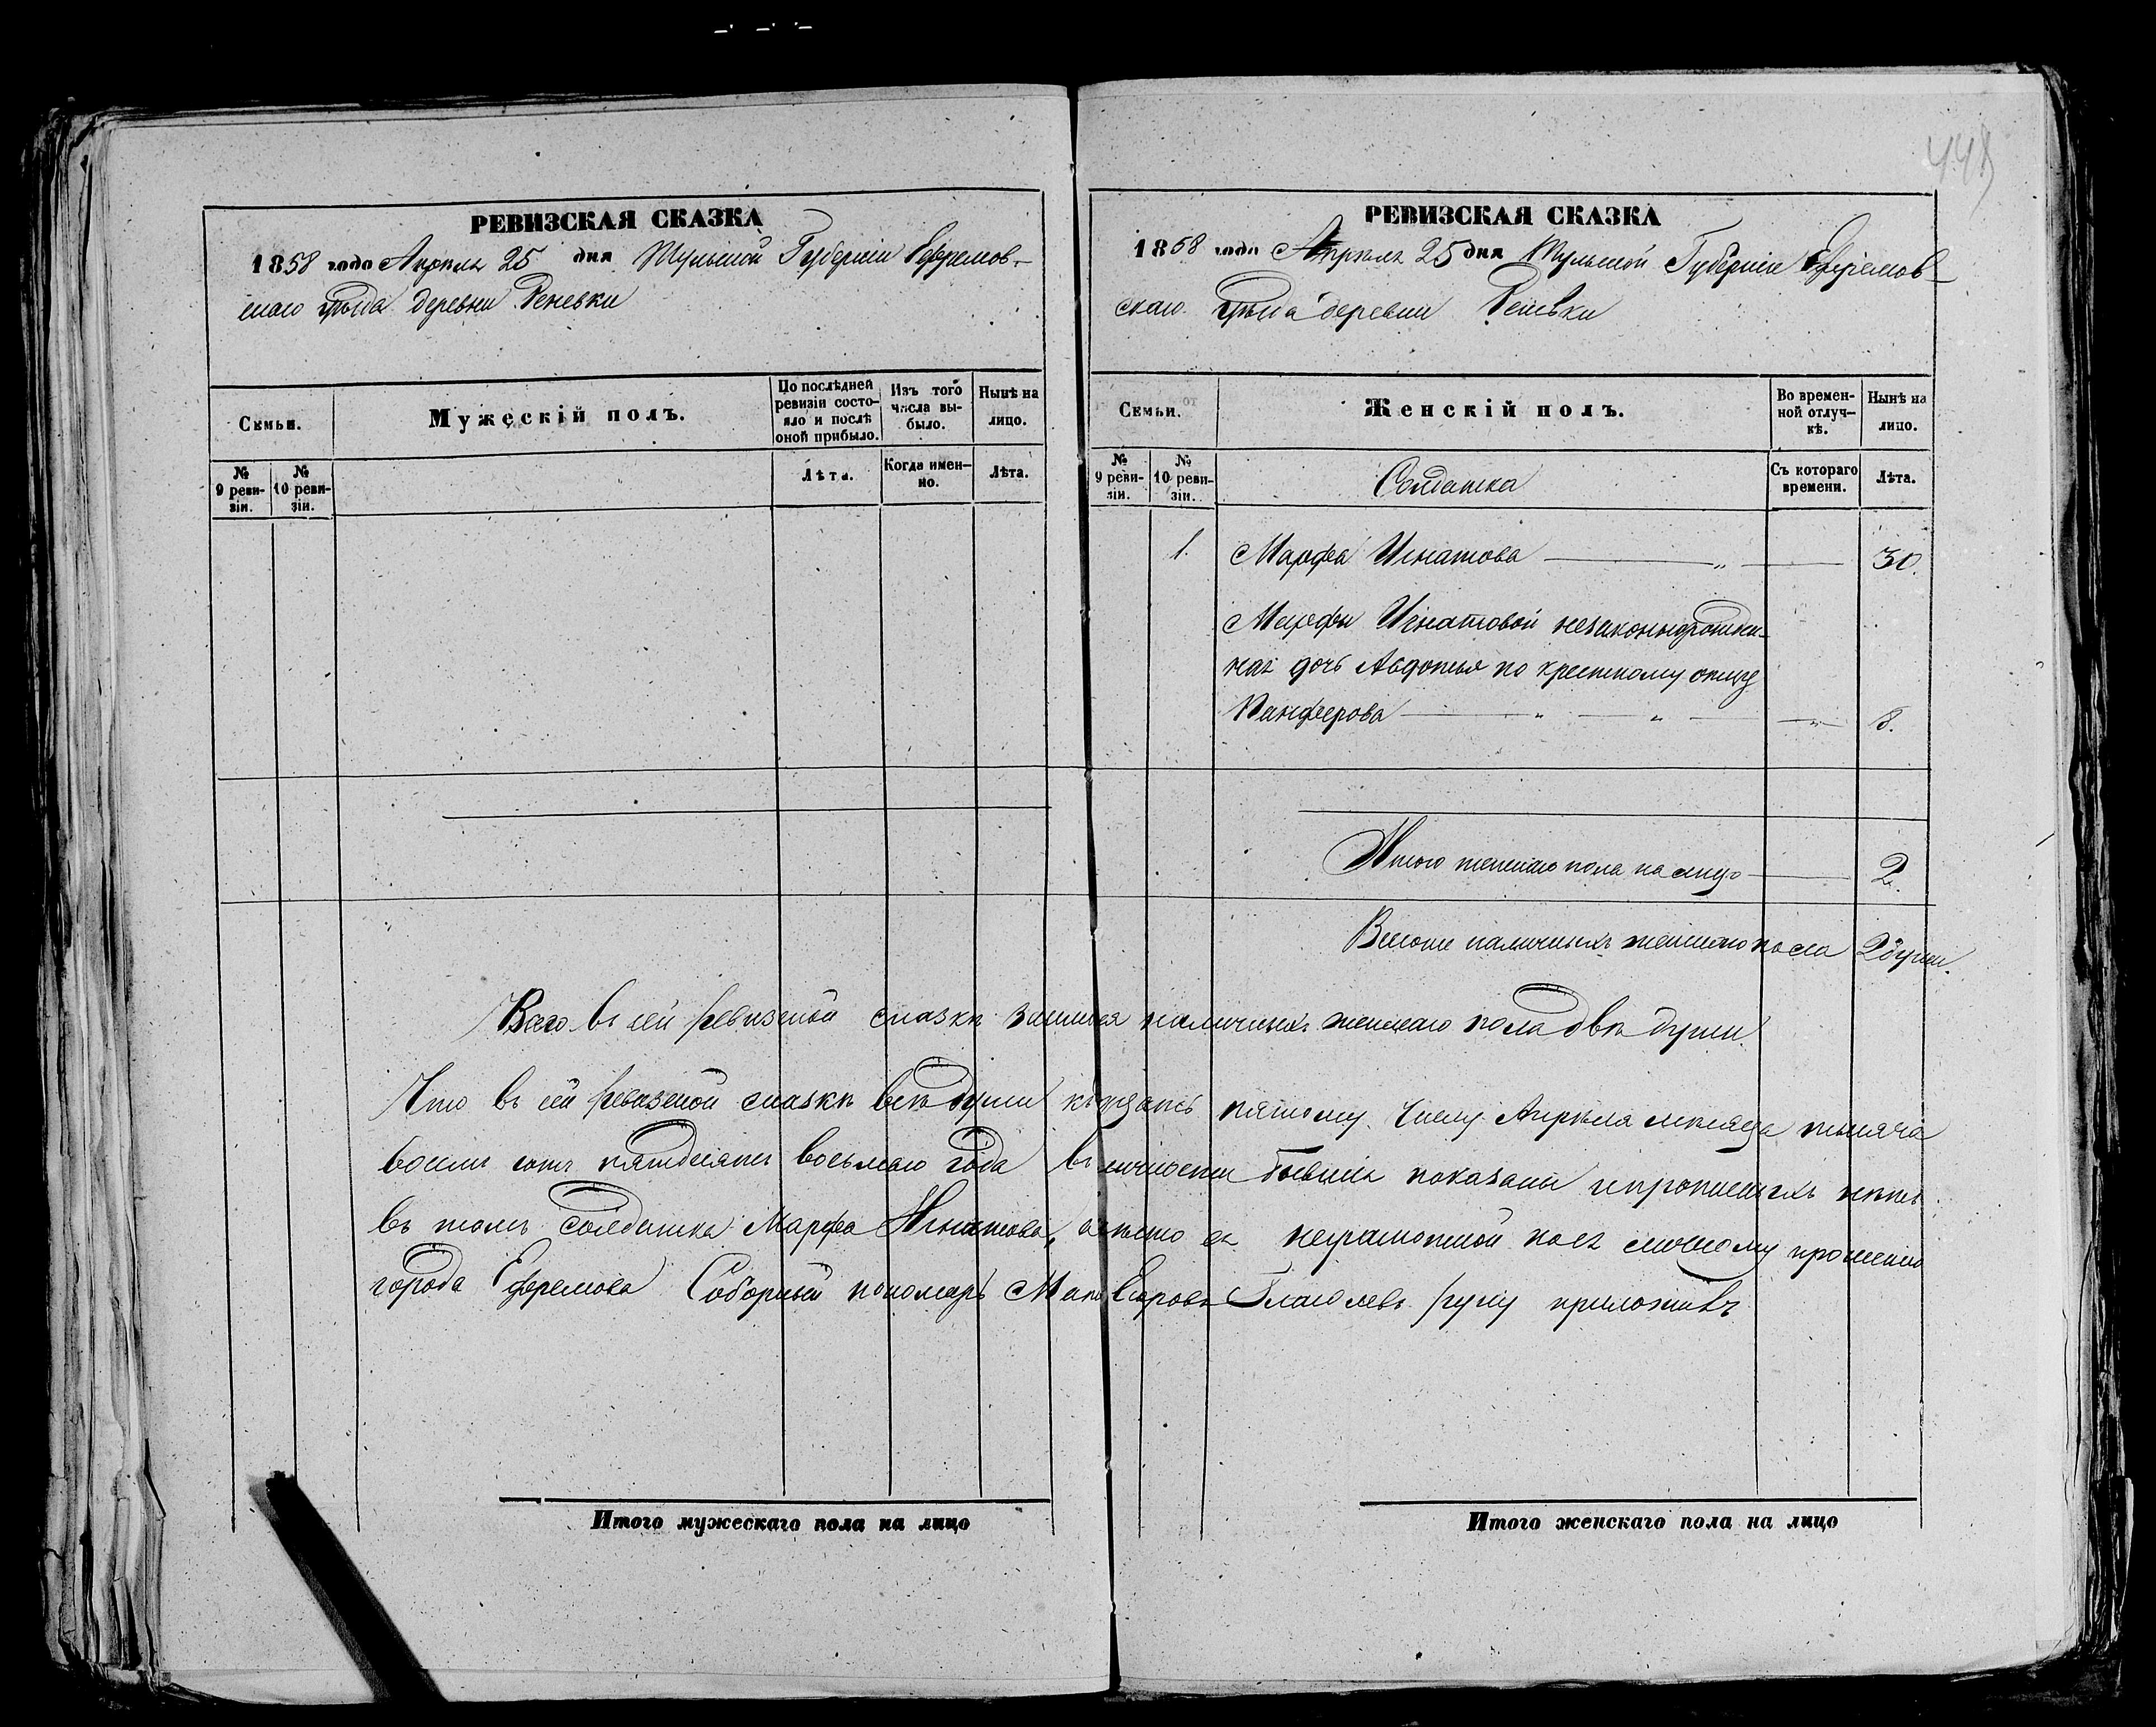 448
РЕВИЗСКАЯ СКАЗКА
1858 года Апрѣля 25 дня Тульской Губерніи Ефремов-
скаго уѣзда деревни Реневки
Семьи.
Мужескій полъ.
По послѣдней ревизіи состояло и послѣ оной прибыло.
Изъ того числа выбыло.
Нынѣ на лицо.
№ 9 ревизіи.
№ 10 ревизіи.
Лѣта.
Когда именно.
Лѣта.
Итого мужескаго пола на лицо
РЕВИЗСКАЯ СКАЗКА
1858 года Апрѣля 25 дня Тульской Губерніи Ефремов-
скаго уѣзда деревни
Семьи.
Женскій полъ.
Во временной отлучкѣ.
Нынѣ на лицо.
№ 9 ревизіи.
№ 10 ревизіи.
Солдатка
Съ котораго времени.
Лѣта.
1. Марфа Игнатова — „ — 30.
Марфы Игнатовой незаконнорожден-
ная дочь Авдотья по крестному отцу
Панферова — „ — „ — „ — 8.
Итого женскаго пола на лицо — 2.
наличныхъ женскаго пола 2 души.
Всего въ сей ревизской сказкѣ наличныхъ женскаго пола двѣ души.
Что въ сей ревизской сказкѣ всѣ души къ пятому числу Апрѣля мѣсяца тысяча
восемь сотъ пятдесятъ восьмаго года въ наличности бывшія показаны и прописныхъ нѣтъ
въ томъ солдатка Марфа Игнатова, а вмѣсто ея неграмотной по ея личному прошенію
города Ефремова Соборный пономарь Глаголевъ руку приложилъ
Итого женскаго пола на лицо